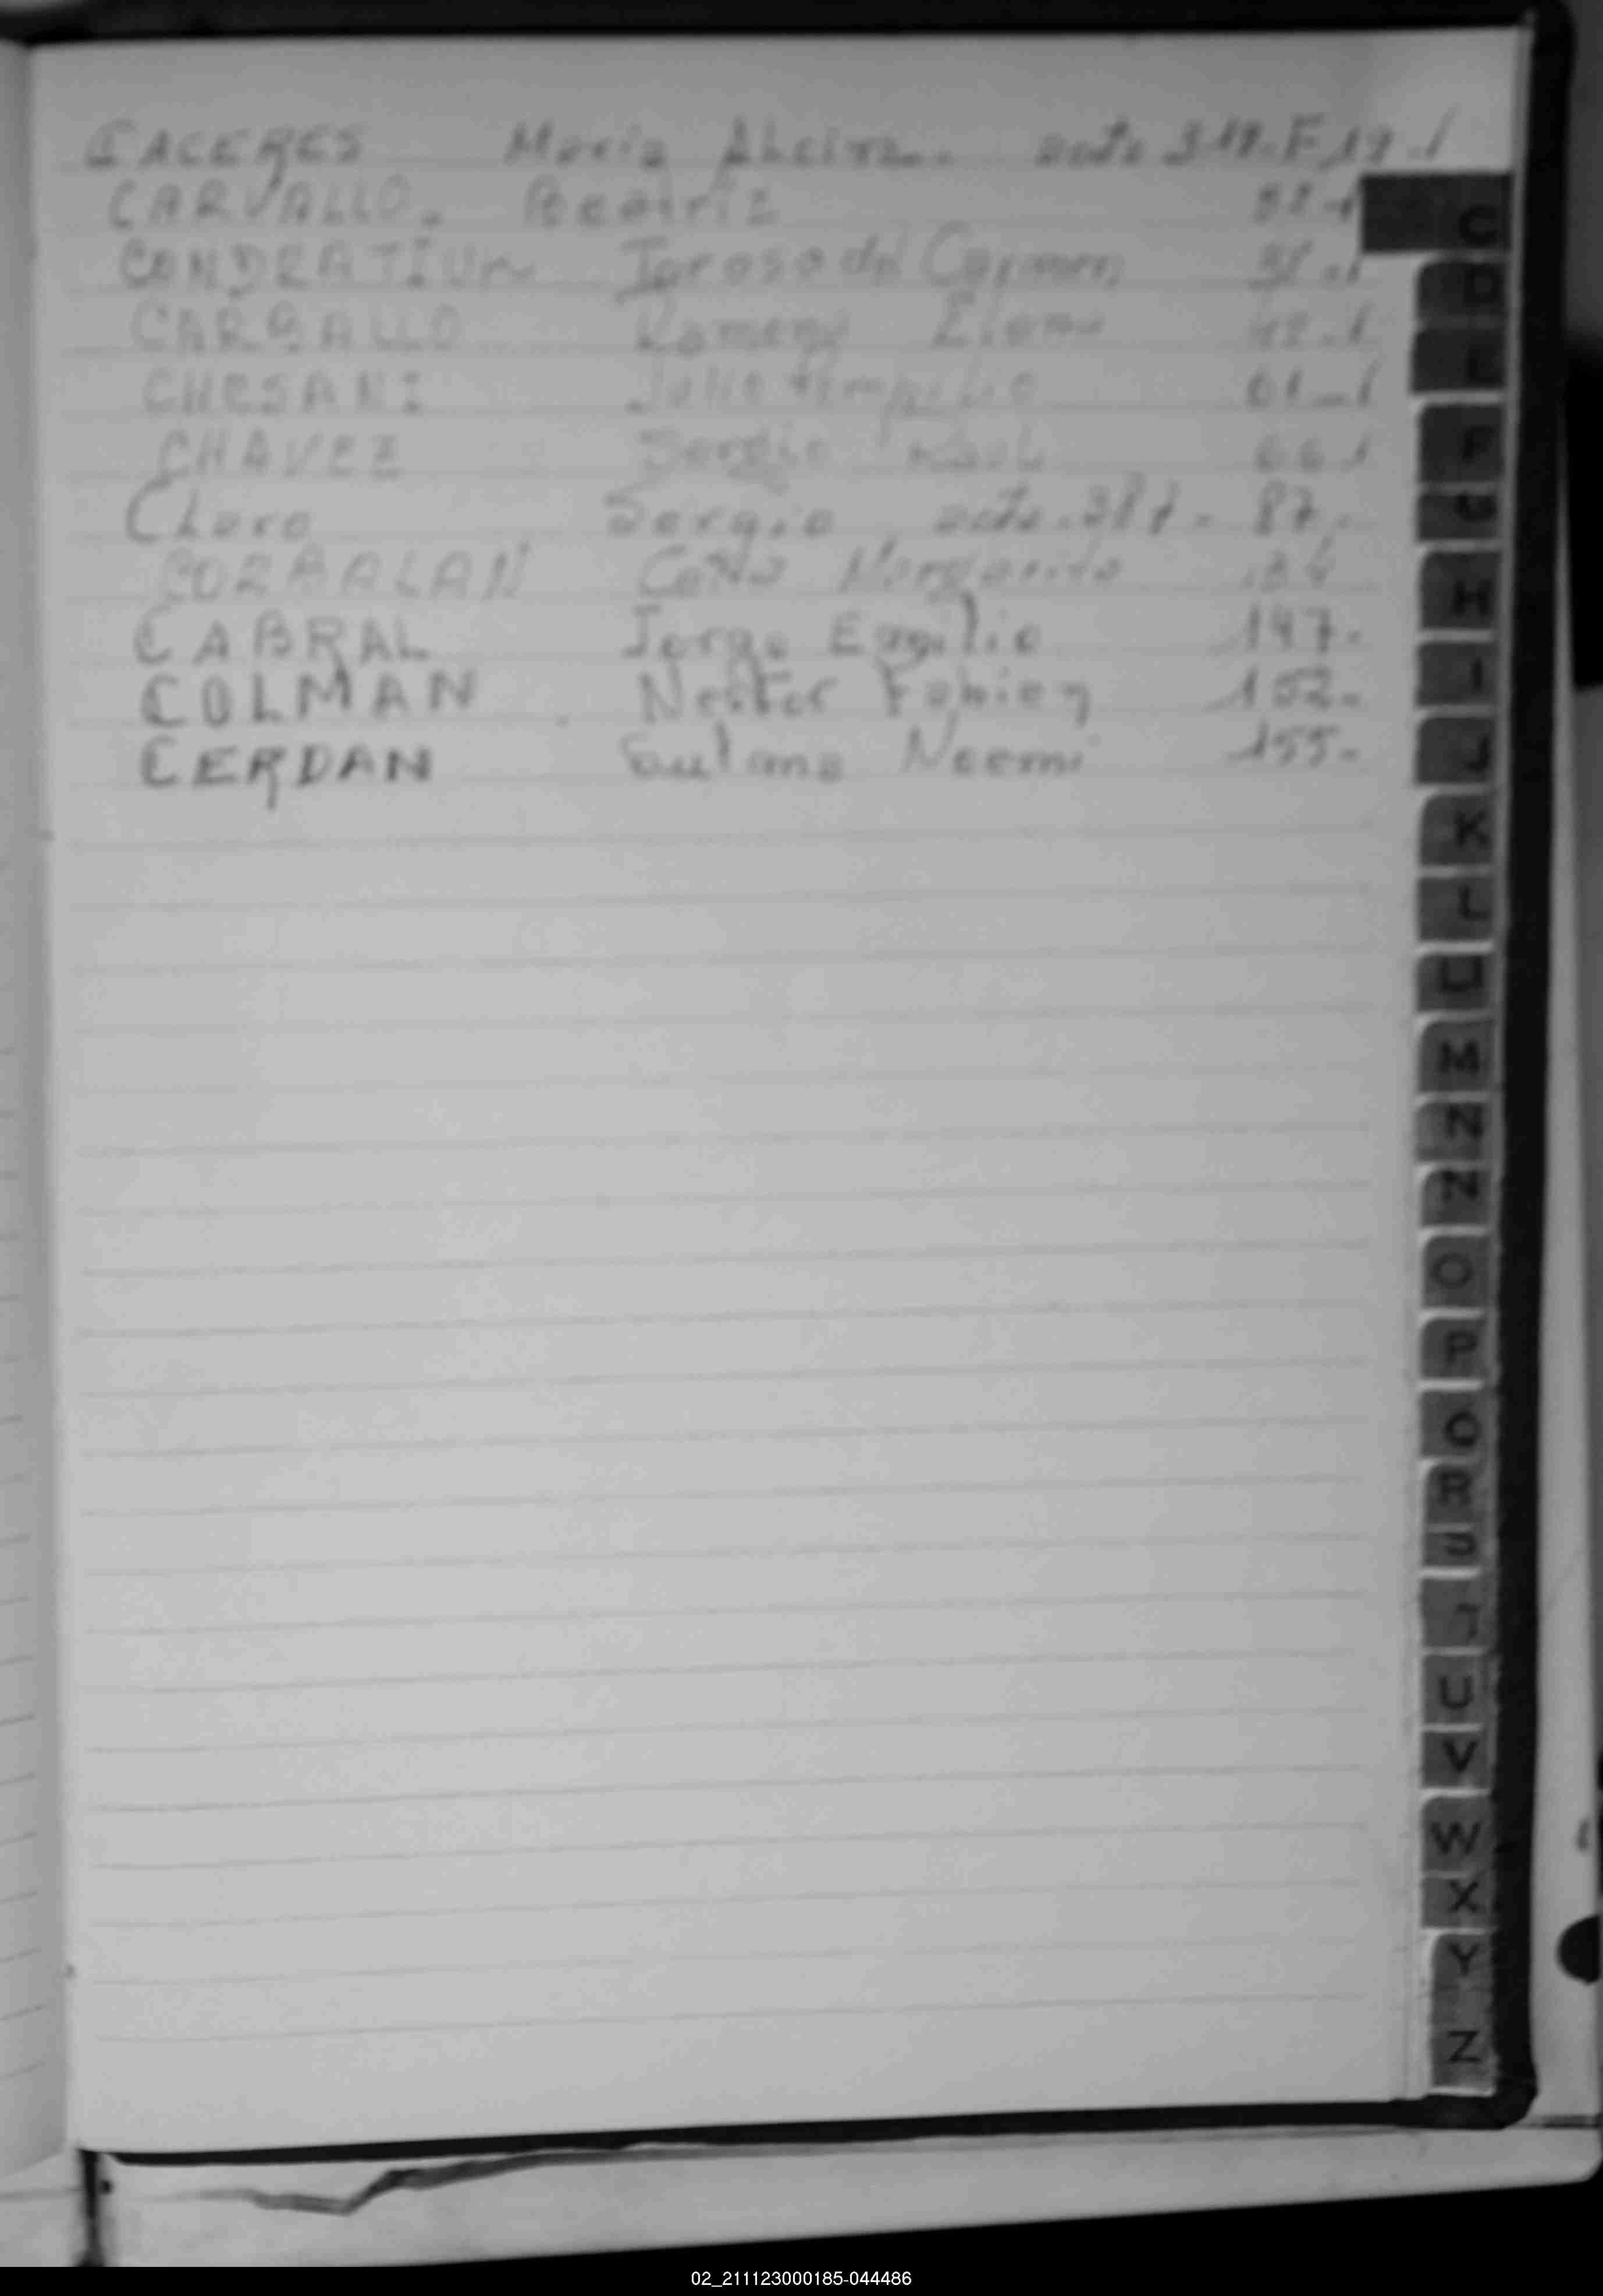 CACERES Maria Alcira. acta 318. F 19-1
CARVALLO. Beatriz
Teresa del Carmen
CARBALLO Ramona Elena 42-1
CHESANI Julio 61-1
CHAVEZ Sergio Raul 66 1
Claro Sergio acta. 387- 87.
CORBALAN Margarita 134
CABRAL Jorge Emilio 147-
COLMAN Nestor Fabian 152-
CERDAN Noemi 155-
C
D
F
H
I
J
K
L
M
N
O
P
Q
R
S
T
U
V
W
X
Y
Z
02_211123000185-044486